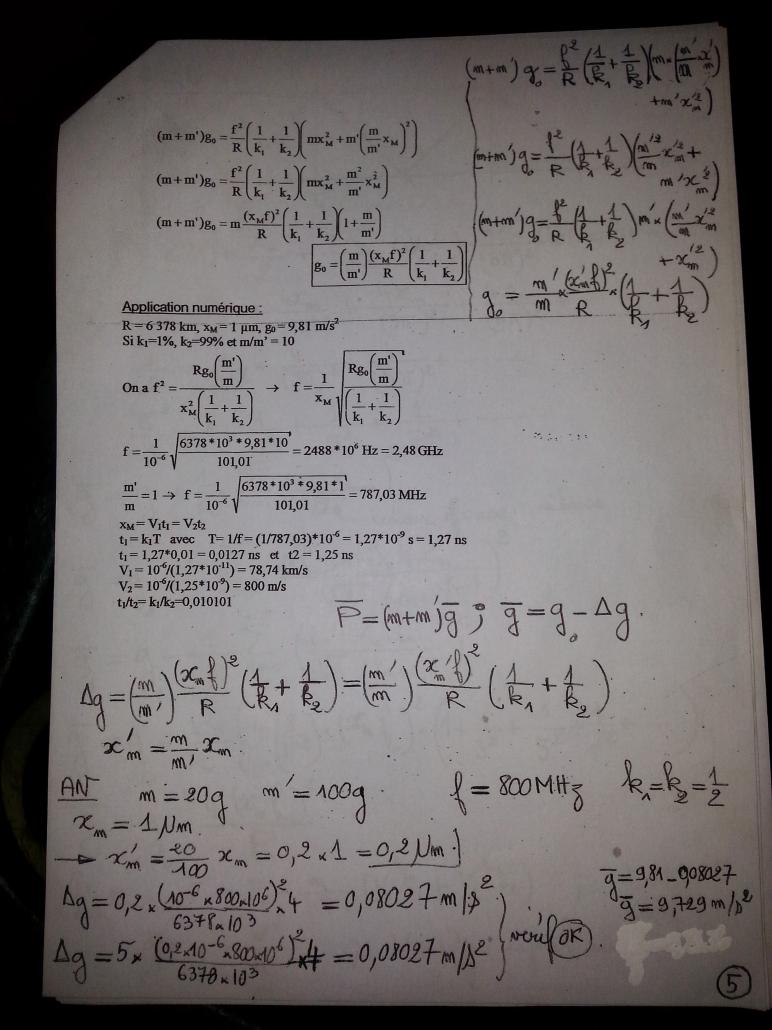 (m+m')g₀ = f²/R (1/k₁ + 1/k₂)(mx²_M + m'(m/m' x_M)²)
(m+m')g₀ = f²/R (1/k₁ + 1/k₂)(mx²_M + m²/m' x²_M)
(m+m')g₀ = m (x_M f)²/R (1/k₁ + 1/k₂)(1 + m/m')
g₀ = (m/m') (x_M f)²/R (1/k₁ + 1/k₂)
(m+m') g₀ = f²/R (1/k₁ + 1/k₂)(m×(m'/m x'_m)²
+ m'x'²_m)
(m+m') g₀ = f²/R (1/k₁ + 1/k₂)(m'²/m x'²_m +
m'x'²_m)
(m+m') g₀ = f²/R (1/k₁ + 1/k₂) m' × (m'/m x'²_m
+ x'²_m)
g₀ = m'/m × (x'_m f)²/R × (1/k₁ + 1/k₂)
Application numérique :
R = 6 378 km, x_M = 1 µm, g₀ = 9,81 m/s²
Si k₁=1%, k₂=99% et m/m' = 10
On a f² = Rg₀(m'/m) / x²_M(1/k₁ + 1/k₂) → f = 1/x_M √(Rg₀(m'/m) / (1/k₁ + 1/k₂))
f = 1/10⁻⁶ √(6378*10³*9,81*10 / 101,01) = 2488*10⁶ Hz = 2,48 GHz
m'/m = 1 → f = 1/10⁻⁶ √(6378*10³*9,81*1 / 101,01) = 787,03 MHz
x_M = V₁t₁ = V₂t₂
t₁ = k₁T avec T= 1/f = (1/787,03)*10⁻⁶ = 1,27*10⁻⁹ s = 1,27 ns
t₁ = 1,27*0,01 = 0,0127 ns et t2 = 1,25 ns
V₁ = 10⁻⁶/(1,27*10⁻¹¹) = 78,74 km/s
V₂ = 10⁻⁶/(1,25*10⁻⁹) = 800 m/s
t₁/t₂= k₁/k₂=0,010101
P̅ = (m+m')g̅ ; g̅ = g₀ − Δg.
Δg = (m/m') (x_m f)²/R (1/k₁ + 1/k₂) = (m'/m) (x'_m f)²/R (1/k₁ + 1/k₂)
x'_m = m/m' x_m
AN m = 20g m' = 100g. f = 800 MHz k₁=k₂=1/2
x_m = 1 µm.
→ x'_m = 20/100 x_m = 0,2 × 1 = 0,2 µm.
Δg = 0,2 × (10⁻⁶ × 800×10⁶)²/6378×10³ × 4 = 0,08027 m/s²
Δg = 5 × (0,2×10⁻⁶ × 800×10⁶)²/6378×10³ × 4 = 0,08027 m/s²
vérif OK.
g̅ = 9,81 − 0,08027
g̅ = 9,729 m/s²
5